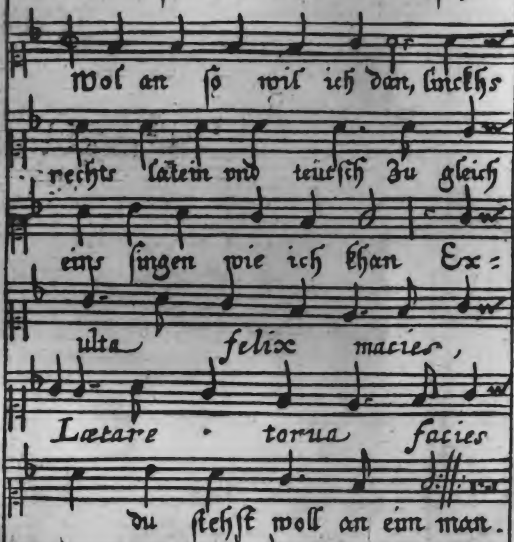 Wol an so wil ich dan, linckhs
rechts latein vnd teütsch Zu gleich
eins singen wie ich khan Ex=
ulta felix macies,
Lætare torua facies
du stehst woll an eim man.